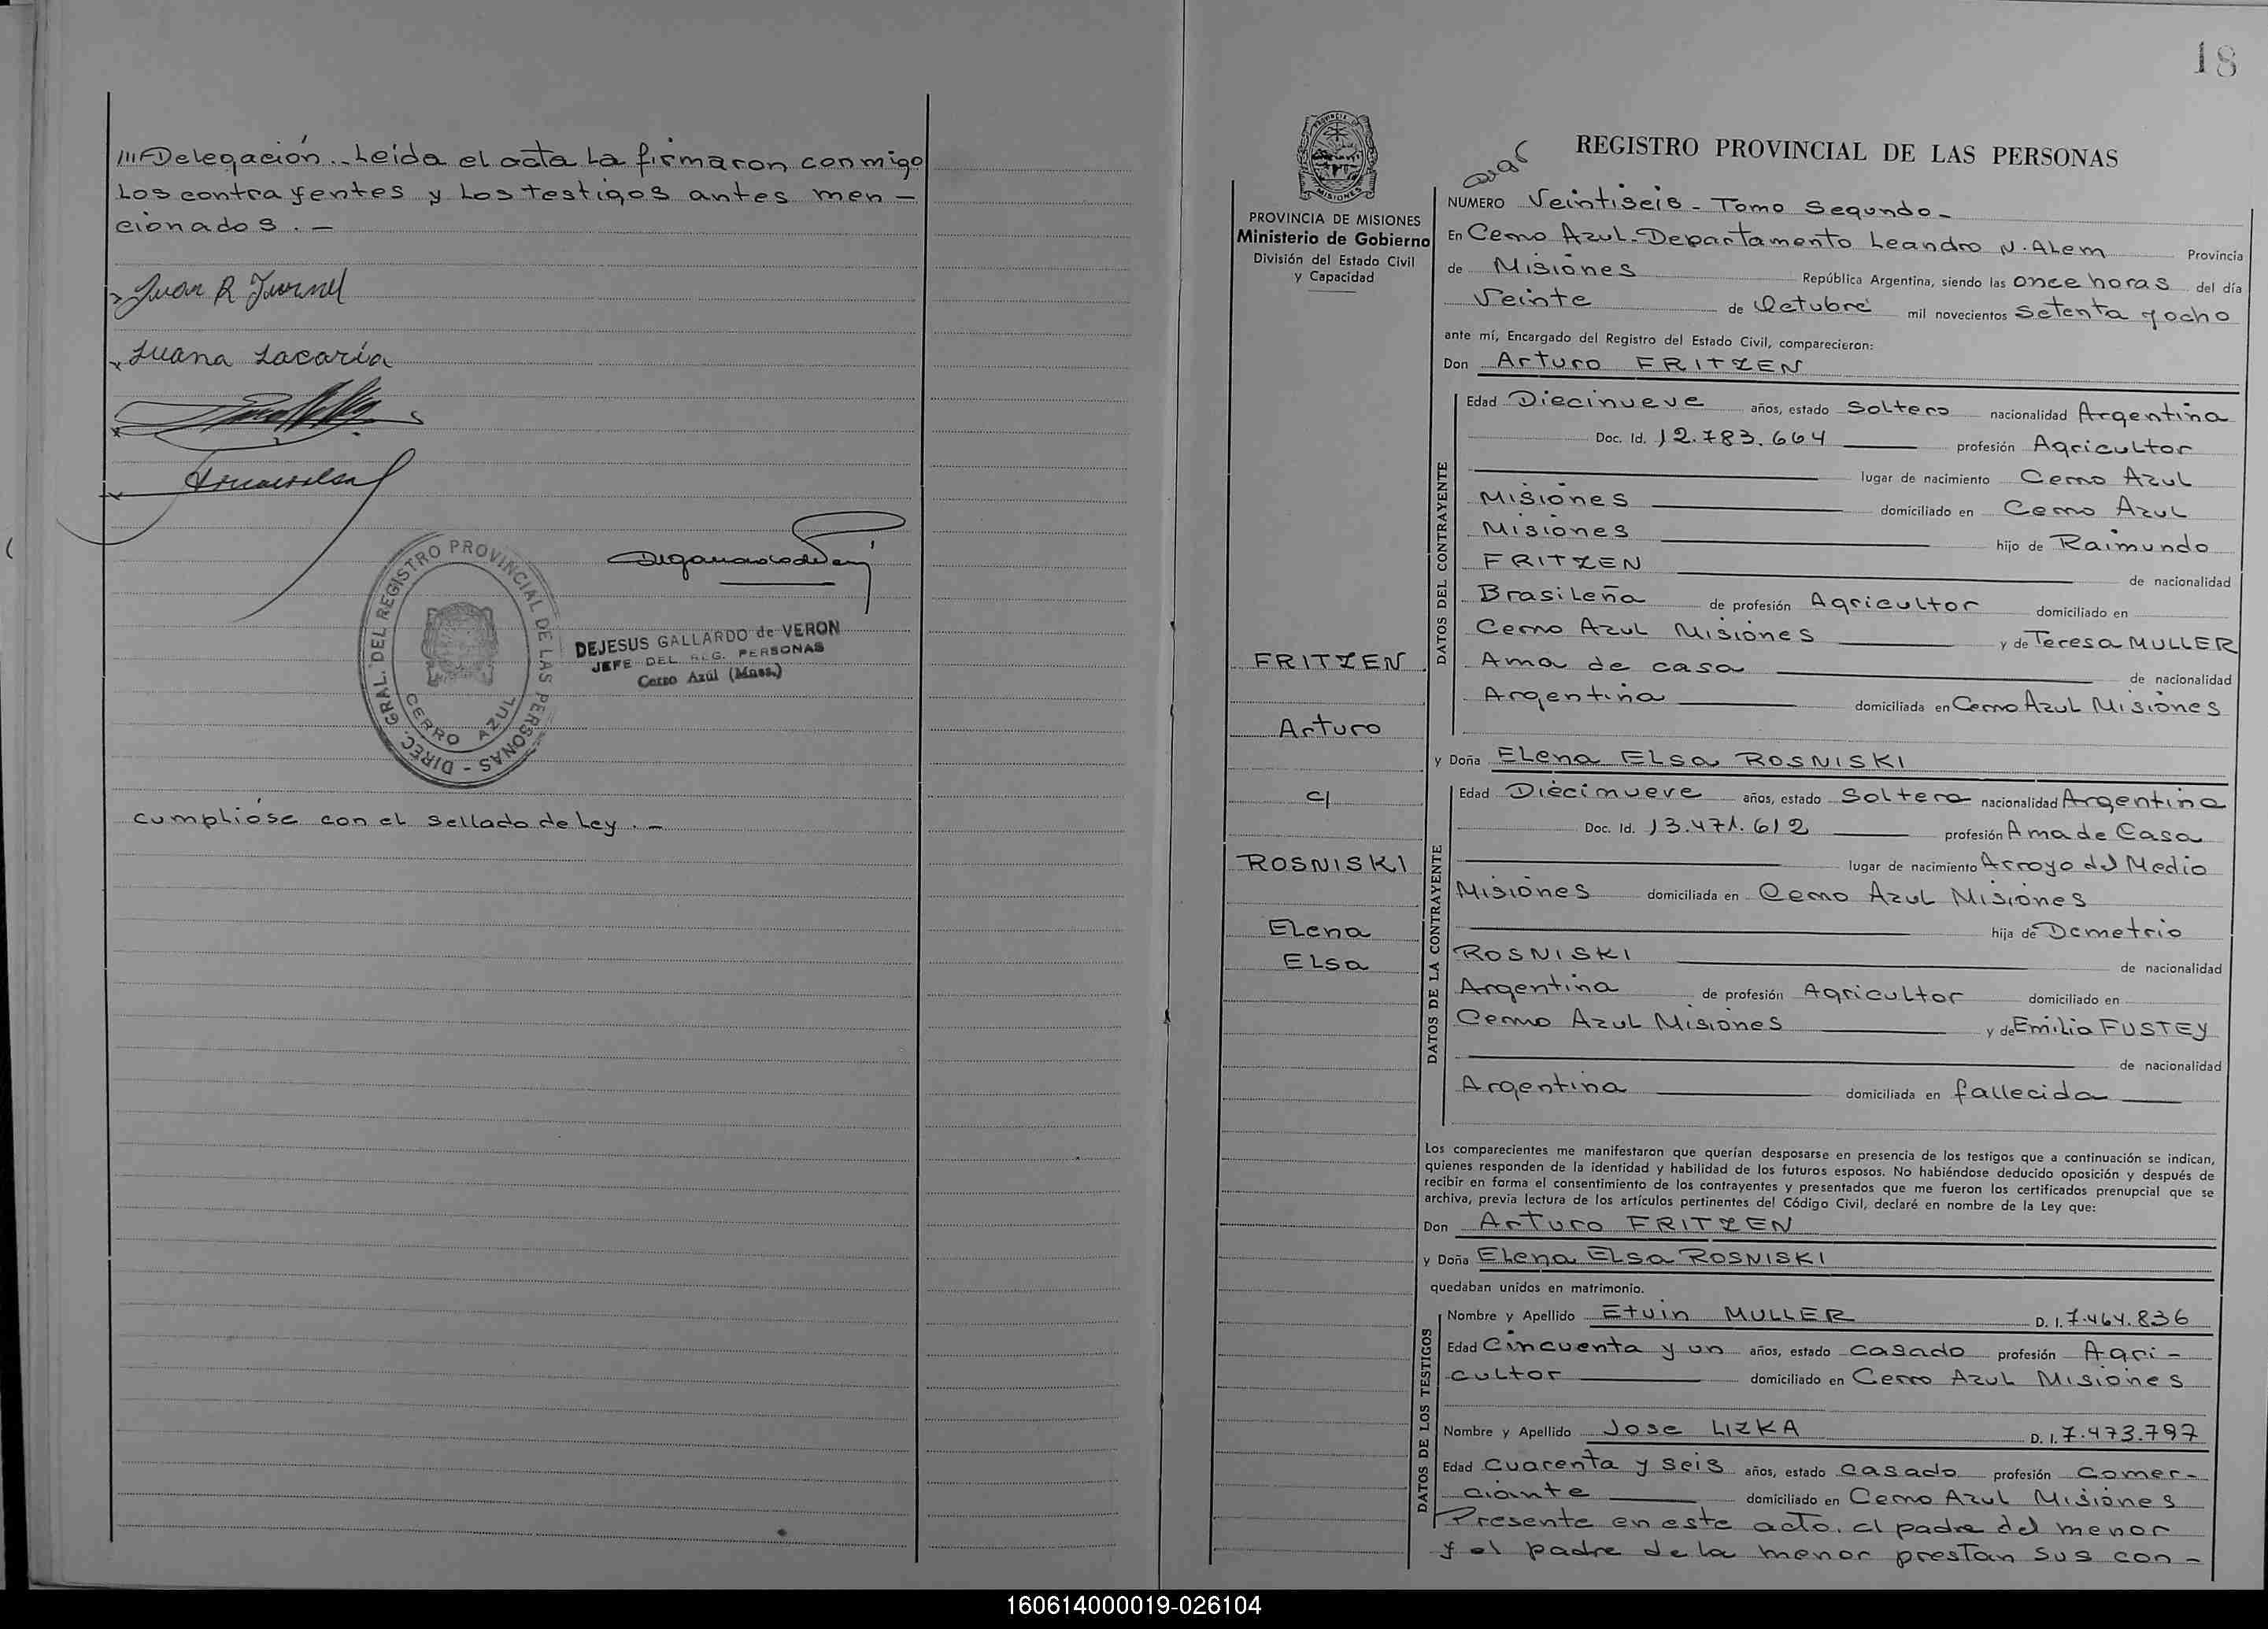 ///Delegación.- Leida el acta la firmaron conmigo
los contrayentes y los testigos antes men-
cionados.-
Juana Lacaria
DIREC. GRAL. DEL REGISTRO PROVINCIAL DE LAS PERSONAS -
CERRO AZUL
DEJESUS GALLARDO de VERON
JEFE DEL REG. PERSONAS
Cerro Azul (Mnes.)
Cumplióse con el sellado de ley.-
18
PROVINCIA DE MISIONES
Ministerio de Gobierno
División del Estado Civil
y Capacidad
FRITZEN
Arturo
c/
ROSNISKI
Elena
Elsa
REGISTRO PROVINCIAL DE LAS PERSONAS
NUMERO Veintiseis - Tomo Segundo-
En Cerro Azul-Departamento Leandro N. Alem Provincia
de Misiones República Argentina, siendo las once horas del día
Veinte de Octubre mil novecientos setenta y ocho
ante mí, Encargado del Registro del Estado Civil, comparecieron:
Don Arturo FRITZEN
DATOS DEL CONTRAYENTE
Edad Diecinueve años, estado Soltero nacionalidad Argentina
Doc. Id. 12.783.664 profesión Agricultor
lugar de nacimiento Cerro Azul
Misiones domiciliado en Cerro Azul
Misiones hijo de Raimundo
FRITZEN de nacionalidad
Brasileña de profesión Agricultor domiciliado en
Cerro Azul Misiones y de Teresa MULLER
Ama de casa de nacionalidad
Argentina domiciliada en Cerro Azul Misiones
y Doña Elena Elsa ROSNISKI
DATOS DE LA CONTRAYENTE
Edad Diecinueve años, estado Soltera nacionalidad Argentina
Doc. Id. 13.471.612 profesión Ama de Casa
lugar de nacimiento Arroyo del Medio
Misiones domiciliada en Cerro Azul Misiones
hija de Demetrio
ROSNISKI de nacionalidad
Argentina de profesión Agricultor domiciliado en
Cerro Azul Misiones y de Emilia FUSTEY
de nacionalidad
Argentina domiciliada en fallecida
Los comparecientes me manifestaron que querían desposarse en presencia de los testigos que a continuación se indican,
quienes responden de la identidad y habilidad de los futuros esposos. No habiéndose deducido oposición y después de
recibir en forma el consentimiento de los contrayentes y presentados que me fueron los certificados prenupcial que se
archiva, previa lectura de los artículos pertinentes del Código Civil, declaré en nombre de la Ley que:
Don Arturo FRITZEN
y Doña Elena Elsa ROSNISKI
quedaban unidos en matrimonio.
DATOS DE LOS TESTIGOS
Nombre y Apellido Etuin MULLER D. I. 7.464.836
Edad Cincuenta y un años, estado casado profesión Agri-
cultor domiciliado en Cerro Azul Misiones
Nombre y Apellido Jose LIZKA D. I. 7.473.797
Edad Cuarenta y seis años, estado casado profesión comer-
ciante domiciliado en Cerro Azul Misiones
Presente en este acto, el padre del menor
y el padre de la menor prestan sus con-
160614000019-026104